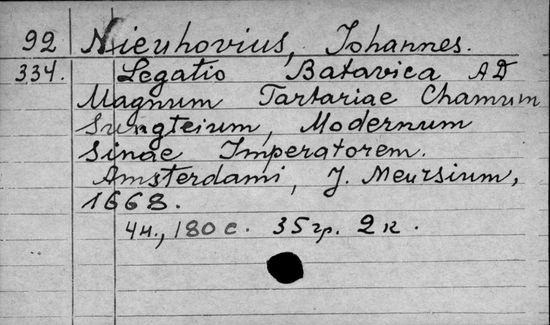 92 Nieuhovius, Iohannes.
334. Legatio Batavica AD
Magnum Tartariae Chamum
Sungteium, Modernum
Sinae Imperatorem.
Amsterdami, J. Meursium,
1668.
4н., 180 с. 35 гр. 2 к.